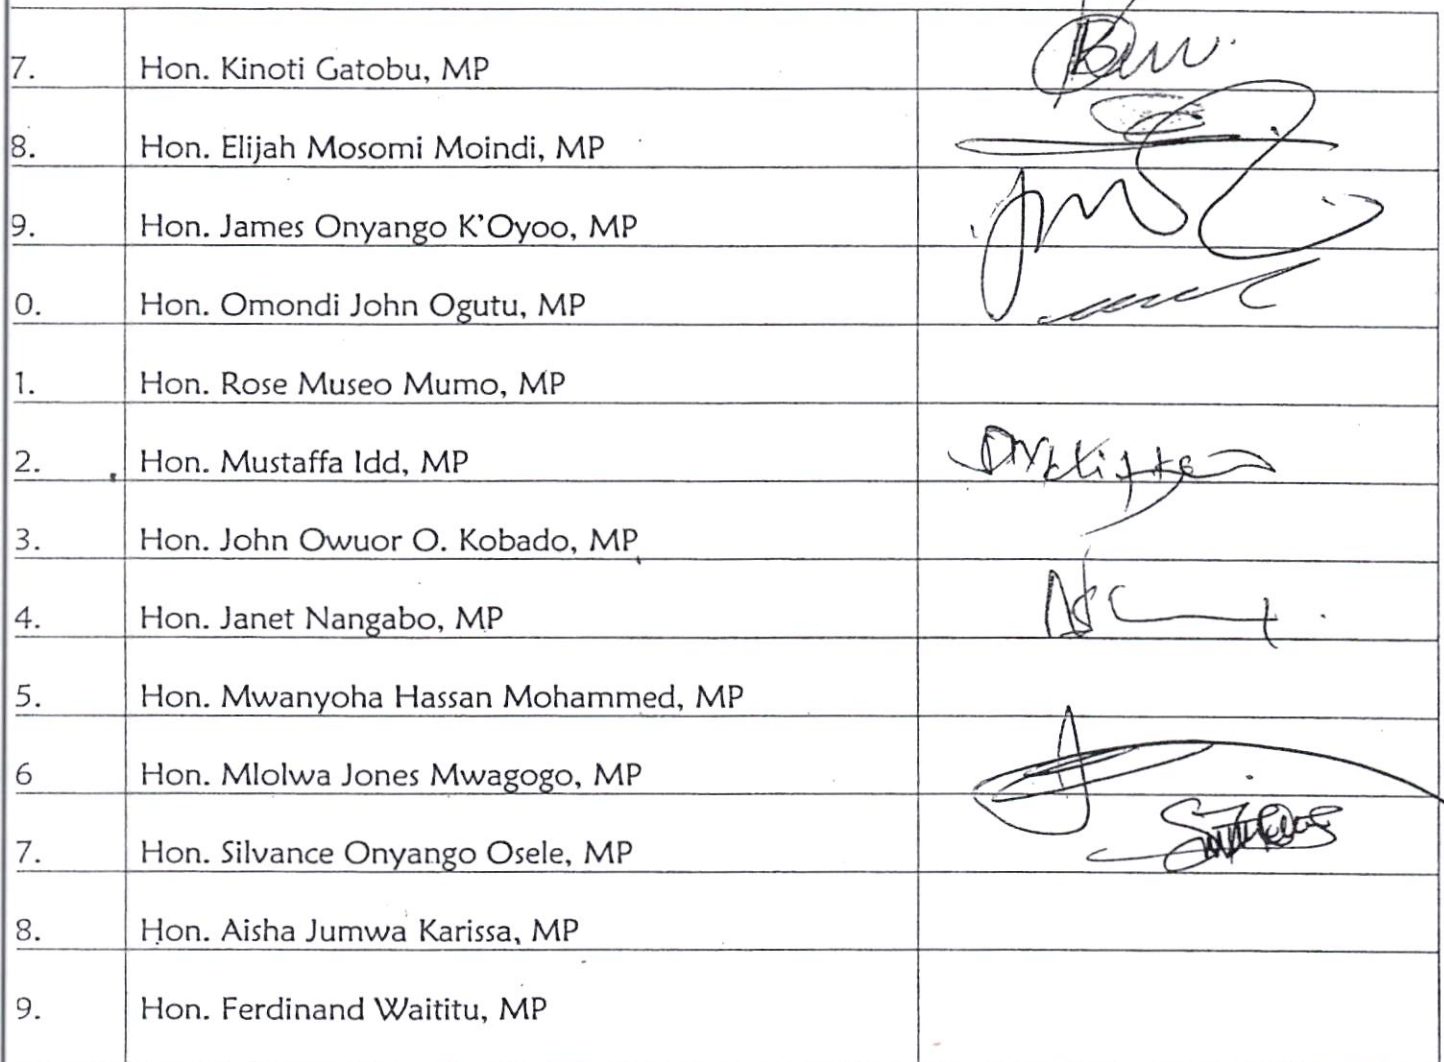 7. Hon. Kinoti Gatobu, MP
8. Hon. Elijah Mosomi Moindi, MP
9. Hon. James Onyango K'Oyoo, MP
0. Hon. Omondi John Ogutu, MP
1. Hon. Rose Museo Mumo, MP
2. Hon. Mustaffa Idd, MP
3. Hon. John Owuor O. Kobado, MP
4. Hon. Janet Nangabo, MP
5. Hon. Mwanyoha Hassan Mohammed, MP
6 Hon. Mlolwa Jones Mwagogo, MP
7. Hon. Silvance Onyango Osele, MP
8. Hon. Aisha Jumwa Karissa, MP
9. Hon. Ferdinand Waititu, MP